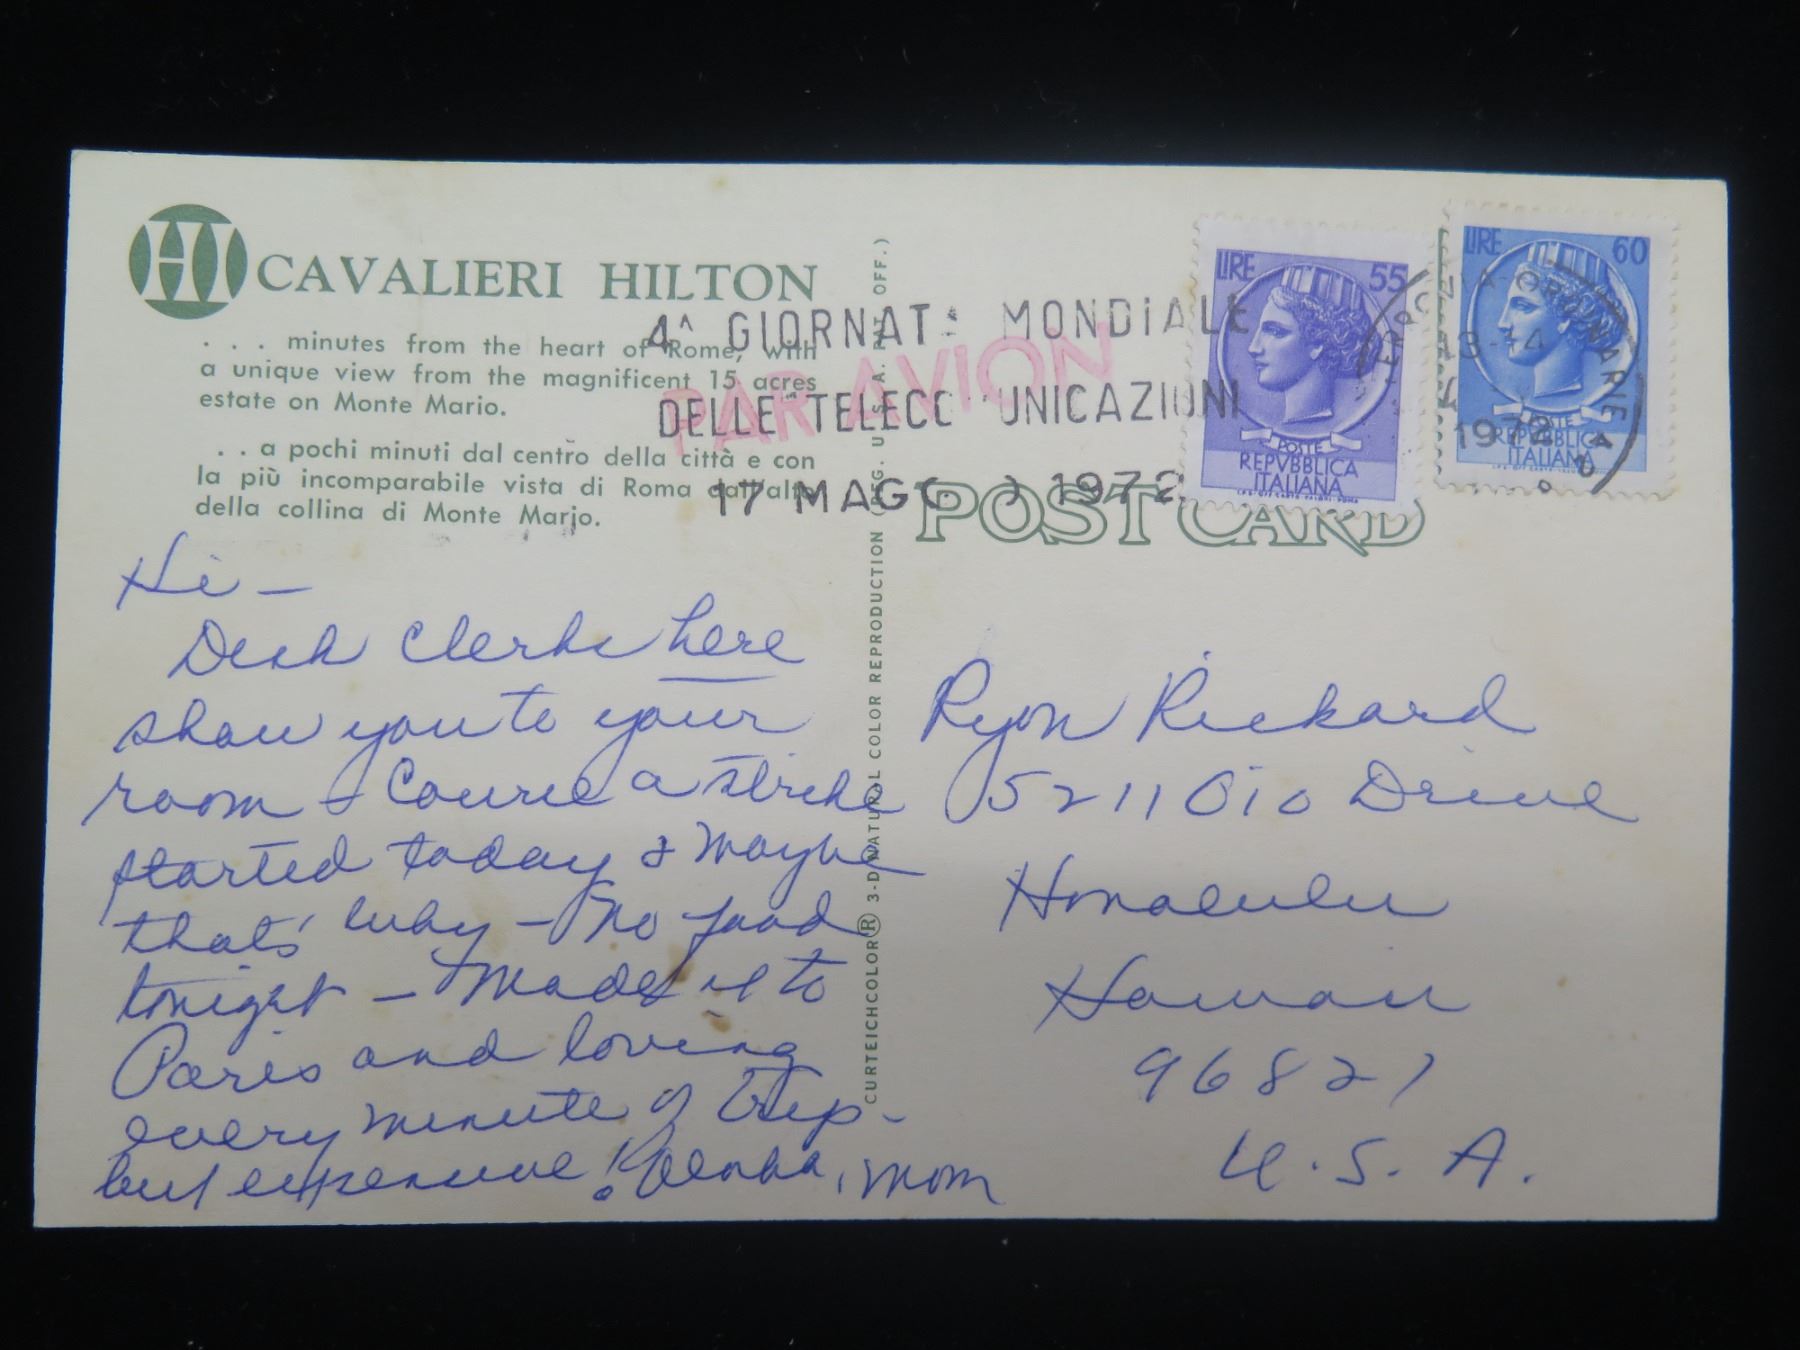 CAVALIERI HILTON
. . . minutes from the heart of Rome, with
a unique view from the magnificent 15 acres
estate on Monte Mario.
. . a pochi minuti dal centro della città e con
la più incomparabile vista di Roma dall'alto
della collina di Monte Mario.
4^ GIORNATA MONDIALE
DELLE TELECOMUNICAZIONI
17 MAGGIO 1972
PAR AVION
LIRE 55
POSTE
REPVBBLICA
ITALIANA
LIRE 60
POSTE
REPVBBLICA
ITALIANA
13-14
1972
POST CARD
CURTEICHCOLOR® 3-D NATURAL COLOR REPRODUCTION (REG. U.S.A. PAT. OFF.)
Hi -
Desk clerks here
show you to your
room & Course a strike
started today & maybe
that's why - No food
tonight - Made it to
Paris and loving
every minute of trip -
but expensive! Aloha, Mom
Ryon Rickard
5211 Oio Drive
Honolulu
Hawaii
96821
U.S.A.